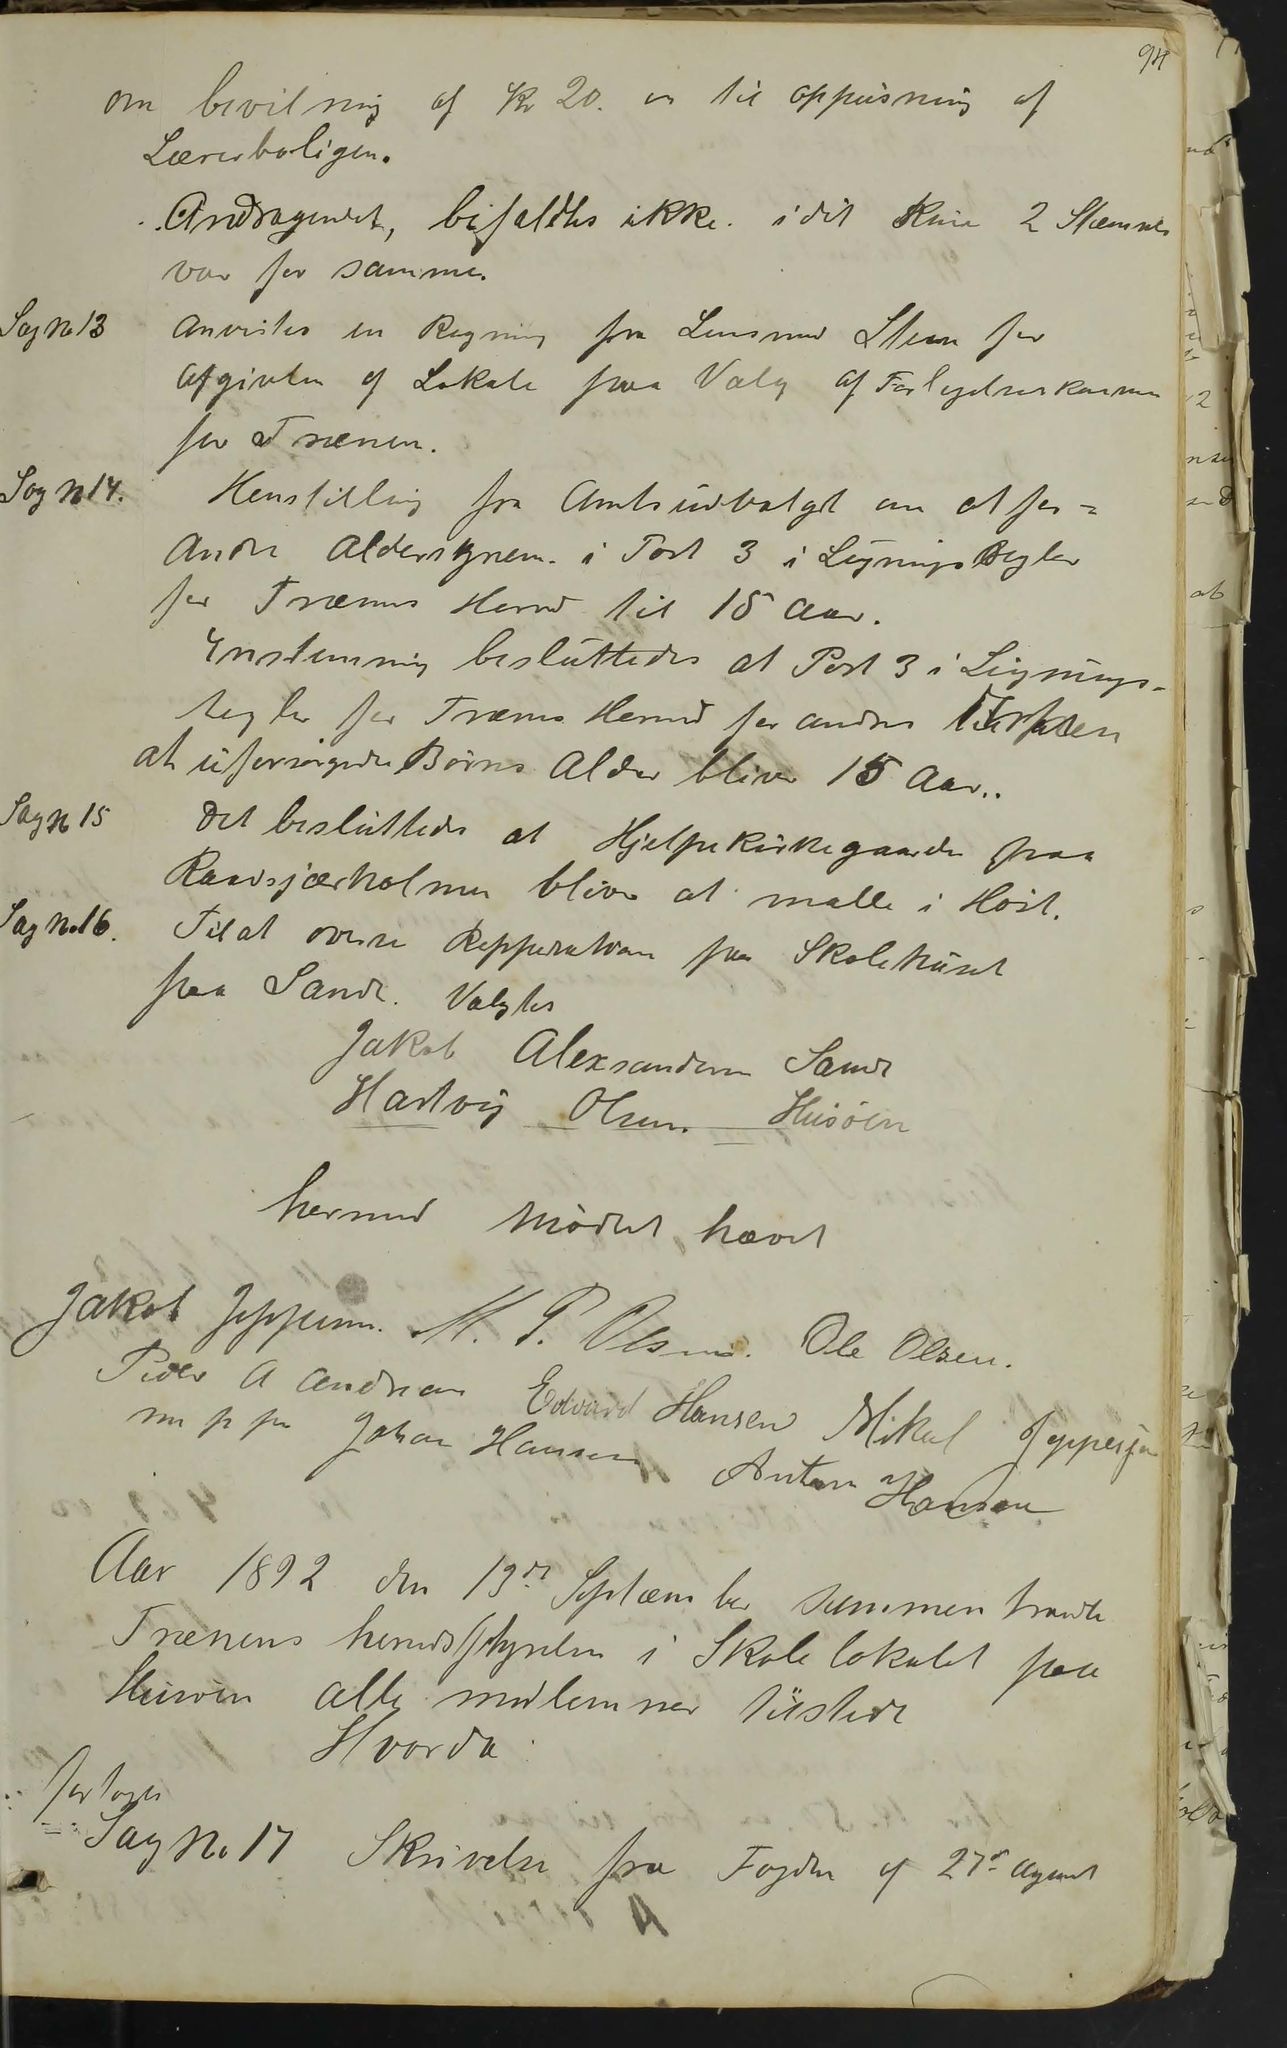 94
om bevilning af Kr 20. er til oppusning af
Lærerboligen.
Andragendet, bifaldtes ikke. i det Kun 2 Stæmmer
var for samme.
Sag No 13 Anvistes en Regning fra Lensmand Steen for
Afgivelse af Lokale paa Valg af Forligelseskomm
for Trænen.
Sag No 14. Henstilling fra Amtsudvalget om at for=
Andre Aldersgrem. i Post 3 i Lignings Regler
for Trænens Herred til 15 Aar.
Enstemmig besluttedes at Post 3 i Lignings-
regler for Trænens Herred for andres
at uforsørgede Børns Alder bliver 15 Aar..
Sag No 15 Det besluttedes at Hjelpekirkegaarden paa
holmen bliver at malle i Høst.
Sag No. 16. Til at overse Repperation paa Skolehuset
paa Sande. Valgtes
Jakob Alexsandersen Sande
Hartvig Olsen. Husøen
hermed Mødet hævet
Jakob Jeppesen. M. P. Olsen. Ole Olsen.
Peder A Andreasen Edvard Hansen Mikal Jeppesen
m p p Johan Hansen Anton Hansen
Aar 1892 den 13de Septæmber sammentraadte
Trænens herredsstyrelse i Skolelokalet paa
Husøen alle medlemner tilstede
Hvorda
fortoges
Sag No. 17 Skrivelse fra Fogden af 27de August